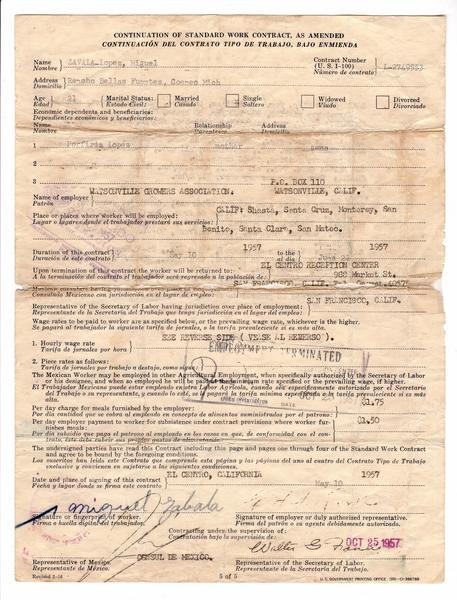 CONTINUATION OF STANDARD WORK CONTRACT, AS AMENDED
CONTINUACIÓN DEL CONTRATO TIPO DE TRABAJO, BAJO ENMIENDA
Name ZAVALA-Lopez, Miguel Contract Number
Nombre (U. S. I-100)
Número de contrato
Address Rancho Bellas Fuentes, Coeneo Mich
Domicilio
Age 21 Marital Status: Married Single Widowed Divorced
Edad Estado Civil: Casado Soltero Viudo Divorciado
Economic dependents and beneficiaries:
Dependientes económicos y beneficiarios:
Name Relationship Address
Nombre Parentesco Domicilio
1 Porfiria Lopez mother same
2
3 P.O. BOX 110
WATSONVILLE GROWERS ASSOCIATION. WATSONVILLE, CALIF.
Name of employer
Patrón
CALIF: Shasta, Santa Cruz, Monterey, San
Place or places where worker will be employed:
Lugar o lugares donde el trabajador prestará sus servicios:
Benito, Santa Clara, San Mateo.
Duration of this contract May 10 1957 to the 1957
Duración de este contrato al día
EL CENTRO RECEPTION CENTER
Upon termination of this contract the worker will be returned to:
A la terminación del contrato el trabajador será regresado a la población de:
982 Market St.
SAN FRANCISCO, CALIF.
Mexican consul having jurisdiction in place of employment:
Consulado Mexicano con jurisdicción en el lugar del empleo:
SAN FRANCISCO, CALIF.
Representative of the Secretary of Labor having jurisdiction over place of employment:
Representante de la Secretaría del Trabajo que tenga jurisdicción en el lugar del empleo:
Wage rates to be paid to worker are as specified below, or the prevailing wage rate, whichever is the higher.
Se pagará al trabajador la siguiente tarifa de jornales, o la tarifa prevaleciente si es más alta.
SEE REVERSE SIDE ( VEASE AL REVERSO ).
1. Hourly wage rate
Tarifa de jornales por hora
EMPLOYMENT TERMINATED
2. Piece rates as follows:
Tarifa por trabajo a destajo, como sigue:
The Mexican Worker may be employed in other Agricultural Employment, when specifically authorized by the Secretary of Labor
or his designee, and when so employed will be paid the minimum rate specified or the prevailing wage, if higher.
El Trabajador Mexicano puede estar empleado en otra Labor Agrícola, cuando sea específicamente autorizado por el Secretario
del Trabajo o su representante, y cuando lo esté, se le pagará la tarifa mínima especificada o la tarifa prevaleciente si es más
alta.
$1.75
Per day charge for meals furnished by the employer:
Por día cantidad que se cobra al empleado en concepto de alimentos suministrados por el patrono:
$1.50
Per day employer payment to worker for subsistence under contract provisions where worker furnishes meals:
Por día subsidio que paga el patrono al empleado en los casos en que, de conformidad con el contrato, éste debe cubrir sus propios gastos de alimentación:
The undersigned parties have read this Contract including this page and pages one through four of the Standard Work Contract
and agree to be bound by the foregoing conditions.
Los suscritos han leído este Contrato que comprende esta página y las páginas del uno al cuatro del Contrato Tipo de Trabajo
inclusive y convienen en sujetarse a las siguientes condiciones.
EL CENTRO, CALIFORNIA 1957
Date and place of signing of this contract May 10
Fecha y lugar donde se firma este contrato
miguel Zabala
Signature or fingerprint of worker. Signature of employer or duly authorized representative.
Firma o huella digital del trabajador. Firma del patrón o su agente debidamente autorizado.
Contracting under the supervision of:
Contratación bajo la supervisión de:
OCT 25 1957
CONSUL DE MEXICO.
Representative of Mexico. Representative of the Secretary of Labor.
Representante de México. Representante de la Secretaría del Trabajo.
5 of 5
U.S. GOVERNMENT PRINTING OFFICE